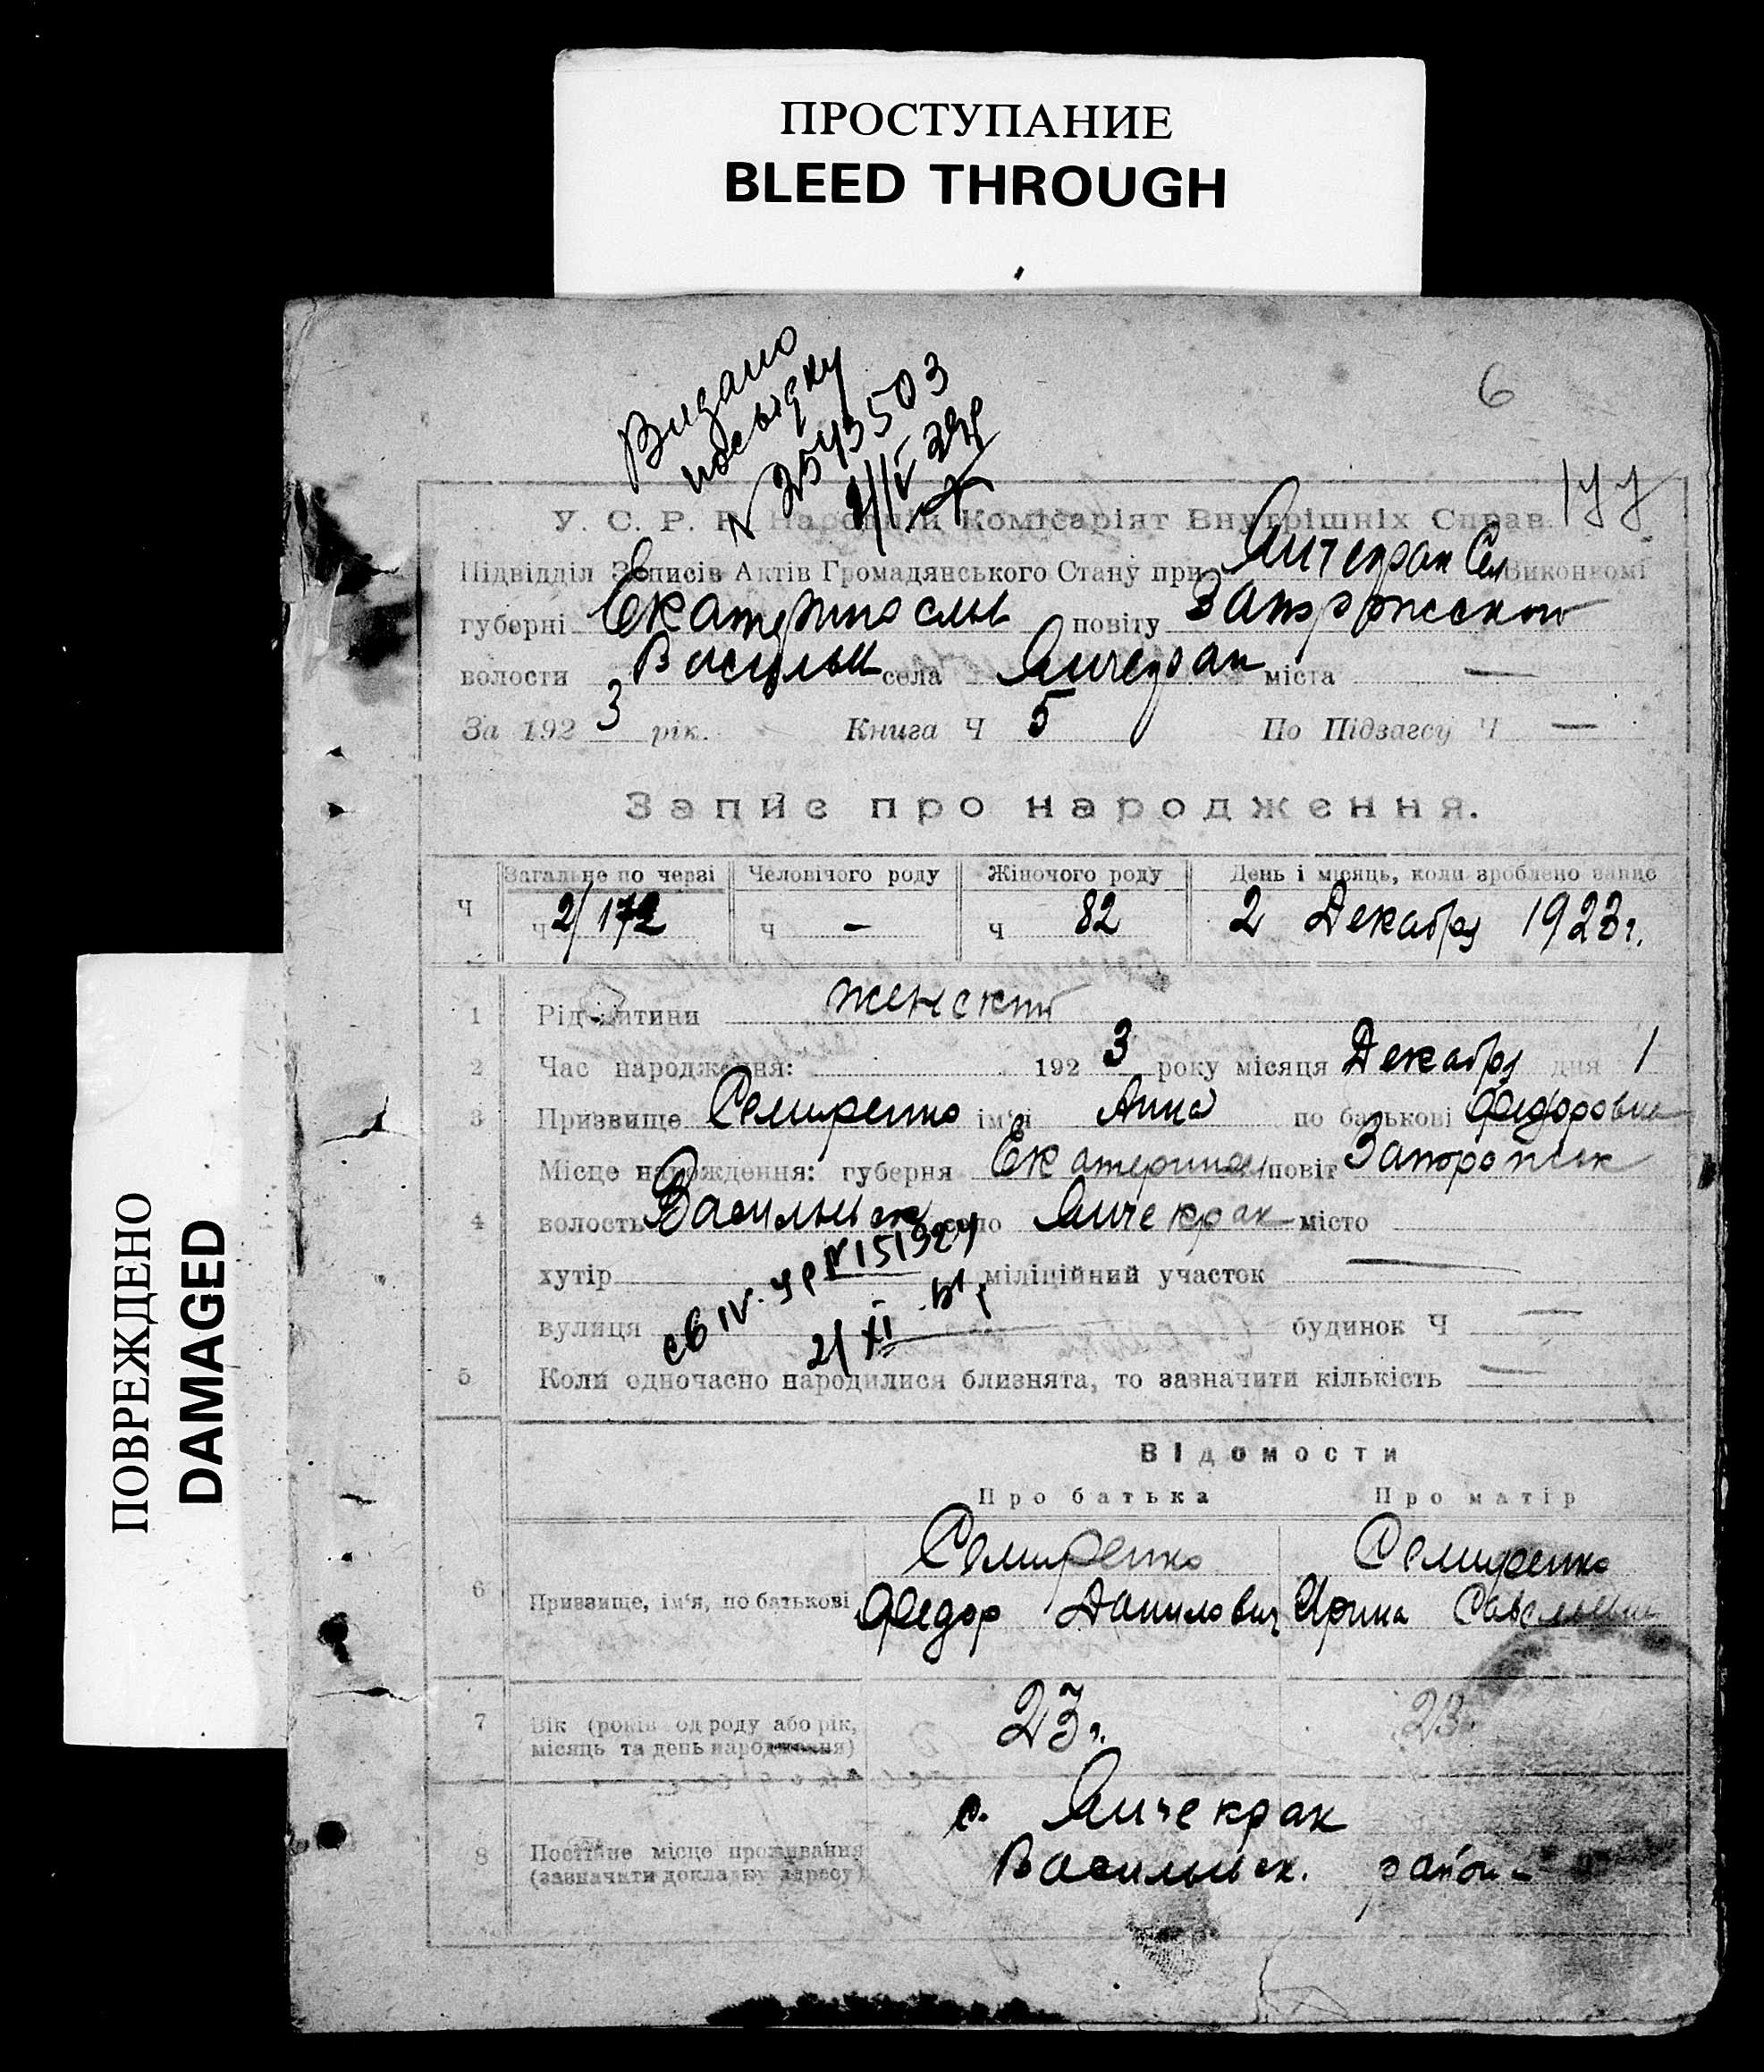 ПРОСТУПАНИЕ
BLEED THROUGH
ПОВРЕЖДЕНО
DAMAGED
6
Видано
посвідку
N 2543503
У. С. Р. Р. Народній Комісаріят Внутрішніх Справ.
Підвідділ Записів Актів Громадянського Стану при Янчекрак Сел Виконкомі
губерні Екатеринослав повіту Запорожского
волости Васильев села Янчекрак міста —
За 1923 рік. Книга Ч 5 По Підзагсу Ч —
Запис про народження.
Загальне по черзі Человічого роду Жіночого роду День і місяць, коли зроблено запис
Ч ч 2/172 ч — ч 82 2 Декабря 1923 г.
1 Рід дитини женский
2 Час народження: 1923 року місяця Декабря дня 1
3 Призвище Семиренко ім'я Анна по батькові Федоровна
Місце народження: губерня Екатеринос повіт Запорожск
4 волость Васильевск село Янчекрак місто
хутір міліційний участок —
св IV. УР N 151924
вулиця будинок Ч —
21/XI
5 Коли одночасно народилися близнята, то зазначити кількість —
Відомости
Про батька Про матір
Семиренко Семиренко
6 Призвище, ім'я, по батькові Федор Данилович Ирина Савельевна
7 Вік (років од роду або рік, місяць та день народження) 23 г. 23 г.
с. Янчекрак
8 Постійне місце проживання (зазначити докладну адресу) Васильевск. район